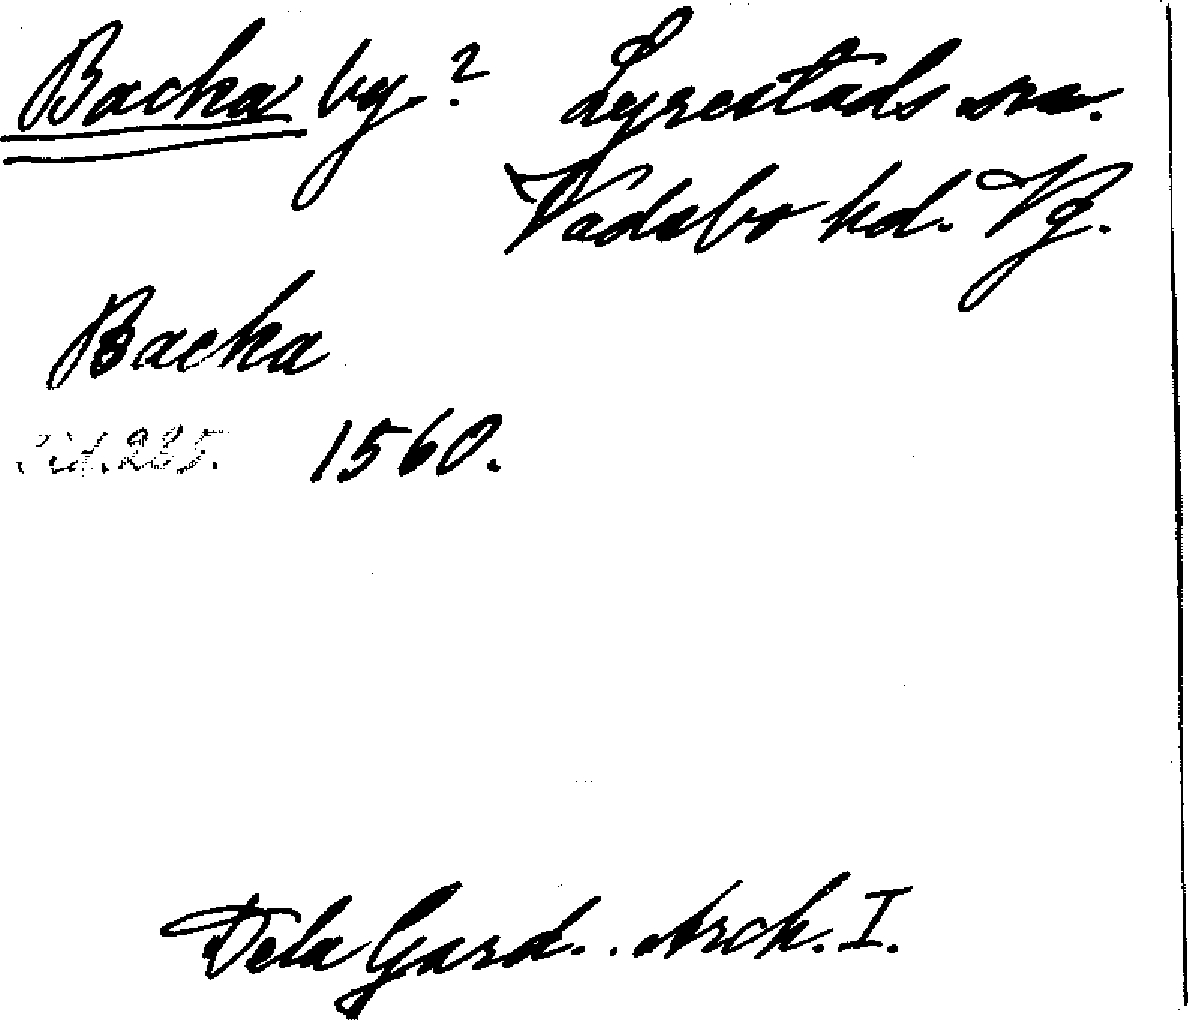 Backa by.? Lyrestads sn.
Vadsbo hd. Vg.
Backa
Sid. 235. 1560.
De la Gard. Arch. I.